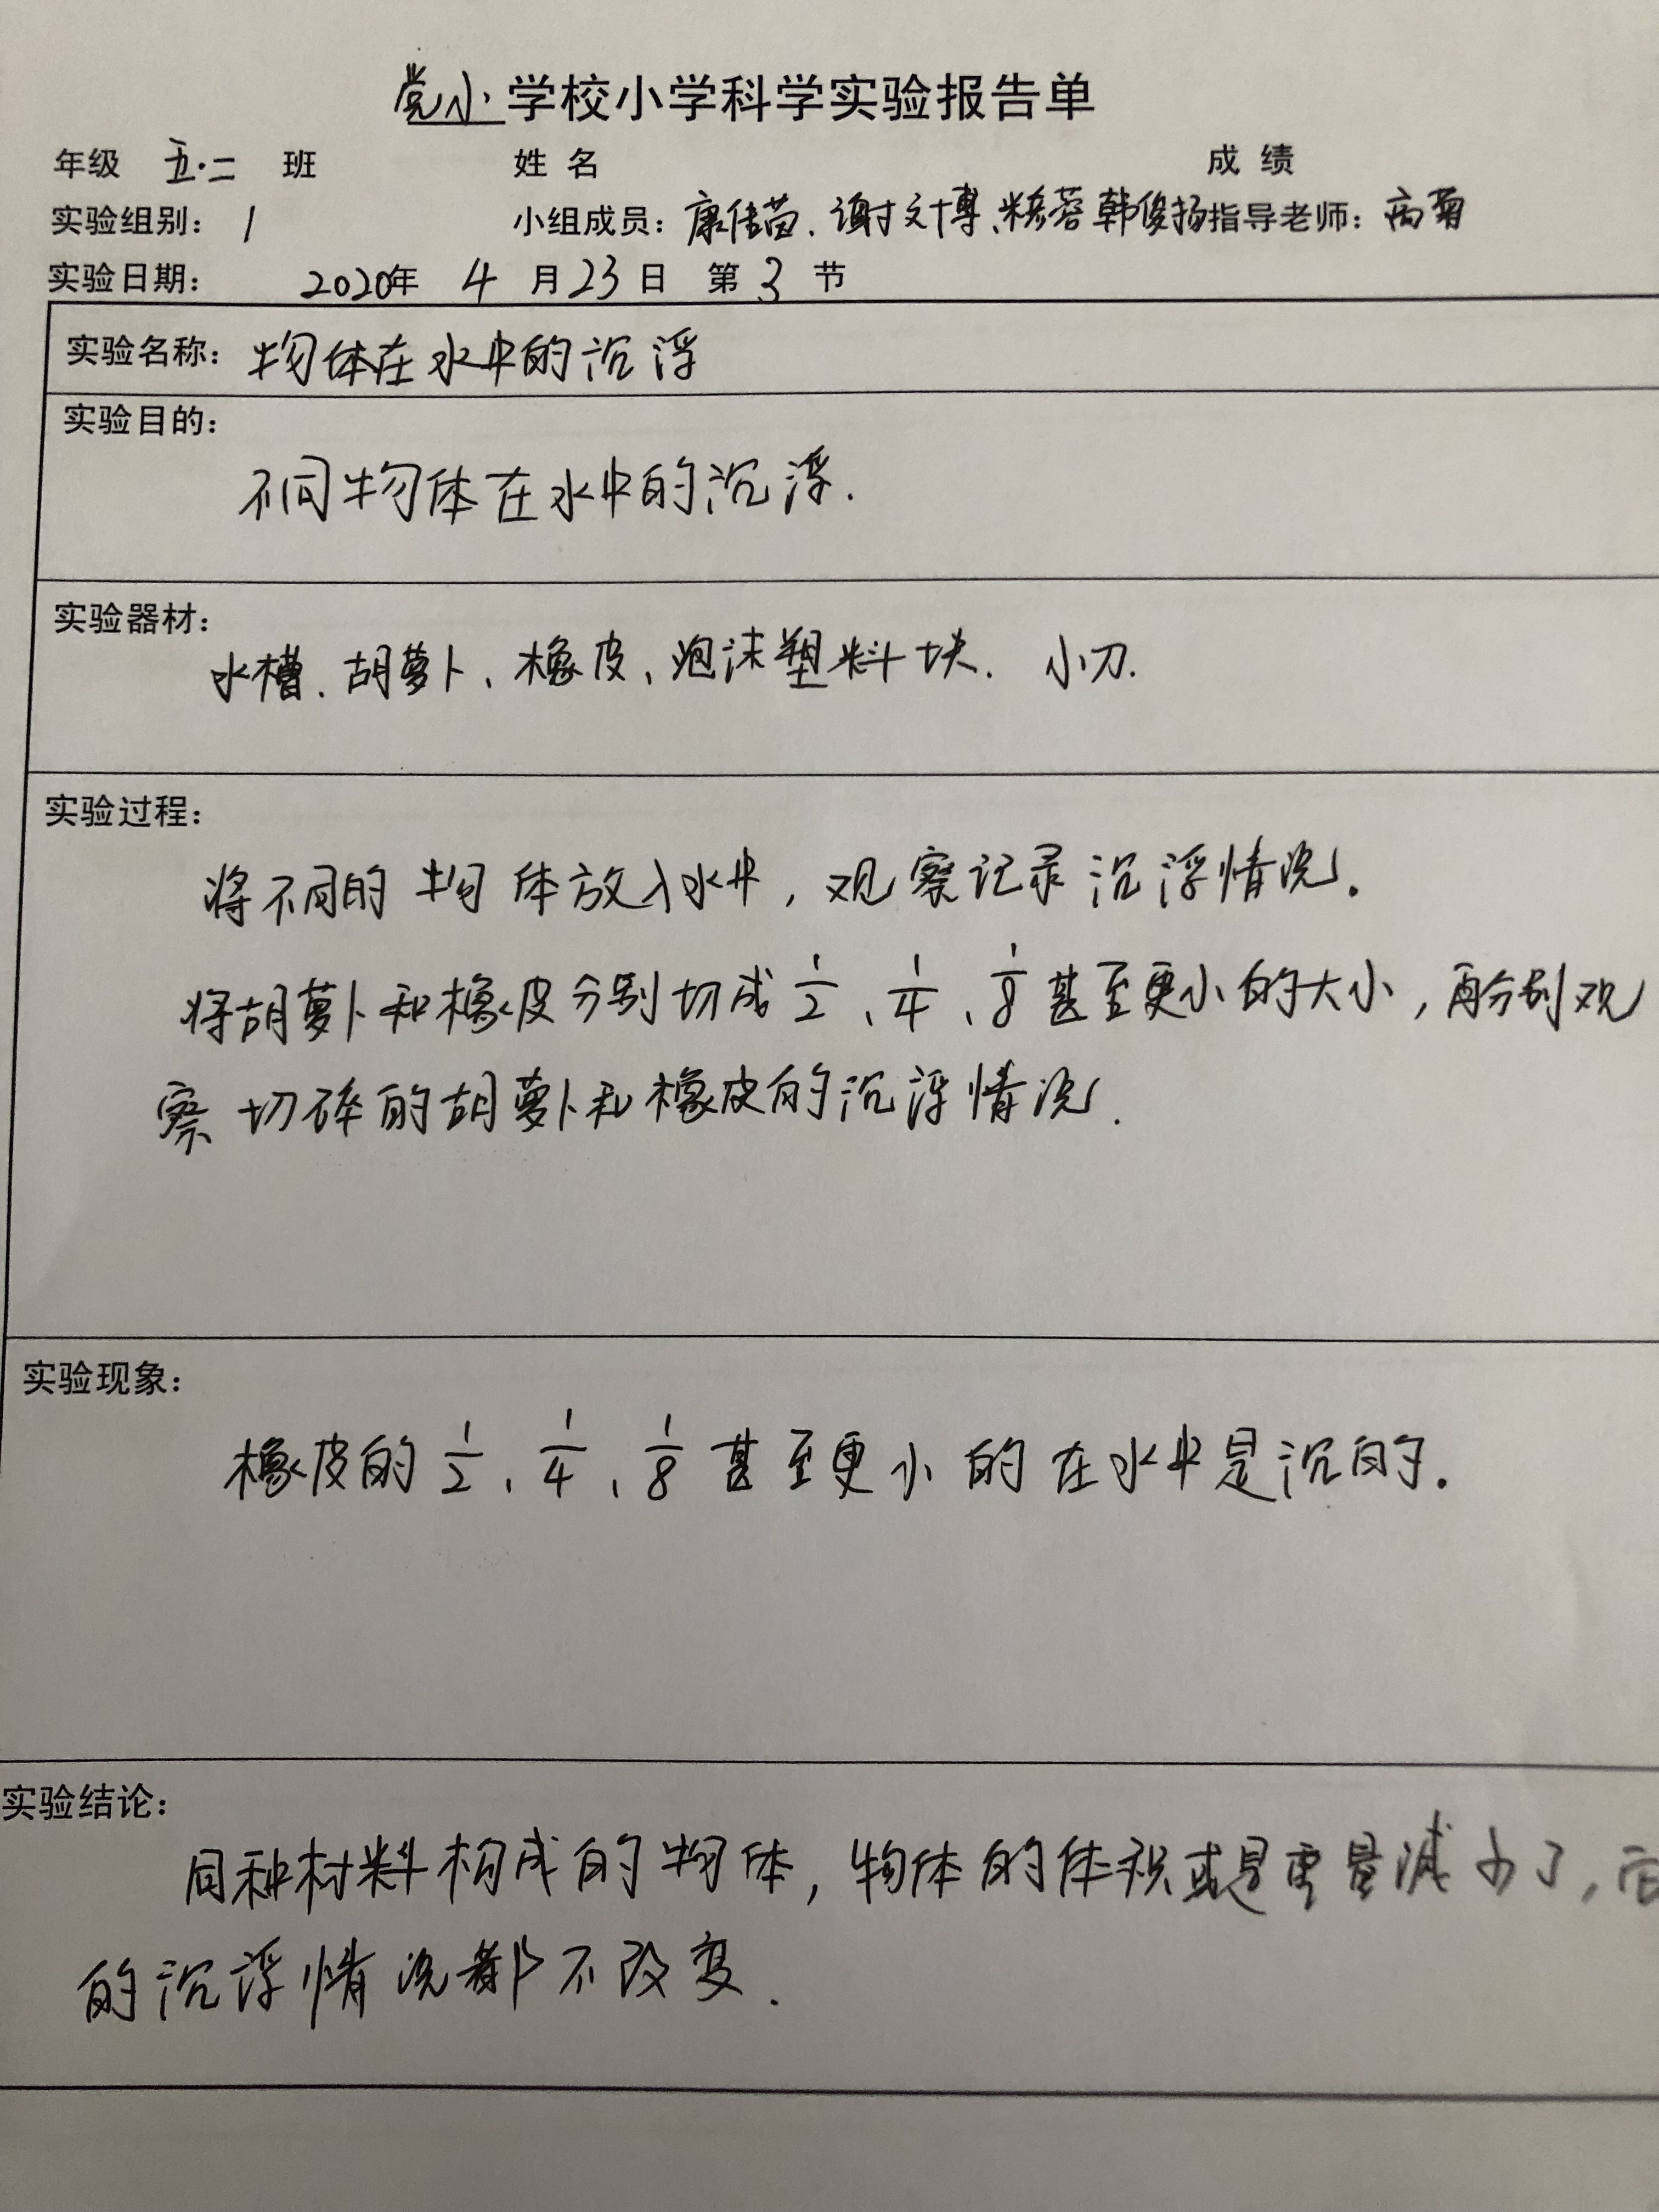 党小学校小学科学实验报告单
年级 五·二 班 姓 名 成 绩
实验组别: 1 小组成员: 康佳苗、谢文博、韩俊扬 指导老师: 菊
实验日期: 2020年 4 月 23 日 第 3 节
实验名称: 物体在水中的沉浮
实验目的:
不同物体在水中的沉浮.
实验器材:
水槽、胡萝卜、橡皮、泡沫塑料块、小刀.
实验过程:
将不同的物体放入水中,观察记录沉浮情况。
将胡萝卜和橡皮分别切成 1/2、1/4、1/8 甚至更小的大小,再分别观
察切碎的胡萝卜和橡皮的沉浮情况.
实验现象:
橡皮的 1/2、1/4、1/8 甚至更小的在水中是沉的.
实验结论:
同种材料构成的物体,物体的体积或是重量减少了,它
的沉浮情况都不改变.